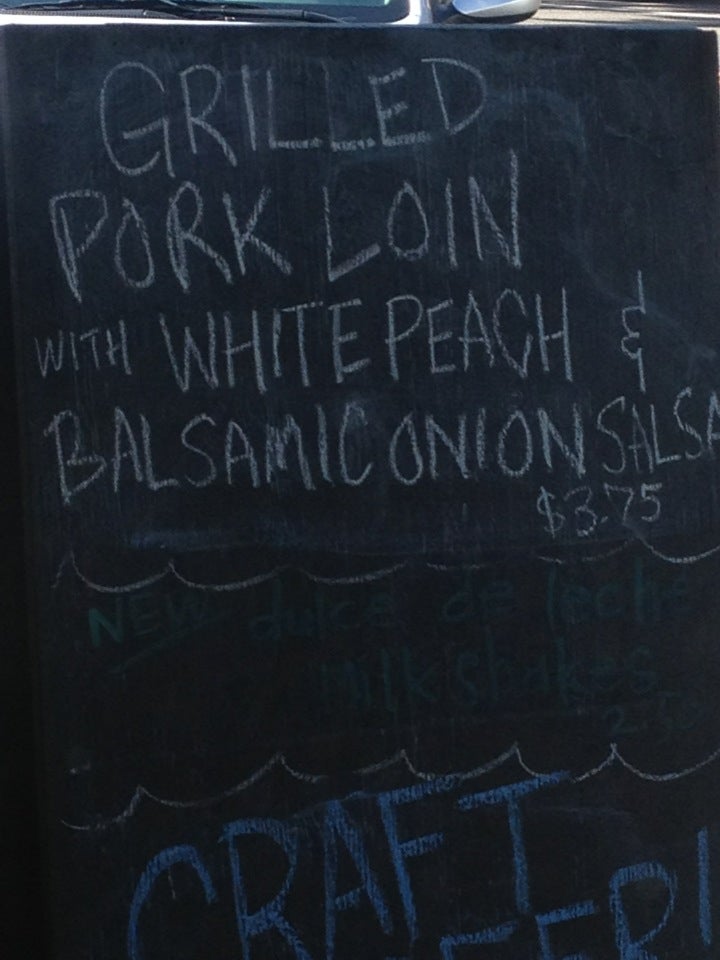 GRILLED
PORK LOIN
WITH WHITE PEACH &
BALSAMIC ONION SALSA
$3.75
NEW dulce de leche
milkshakes
2.50
CRAFT